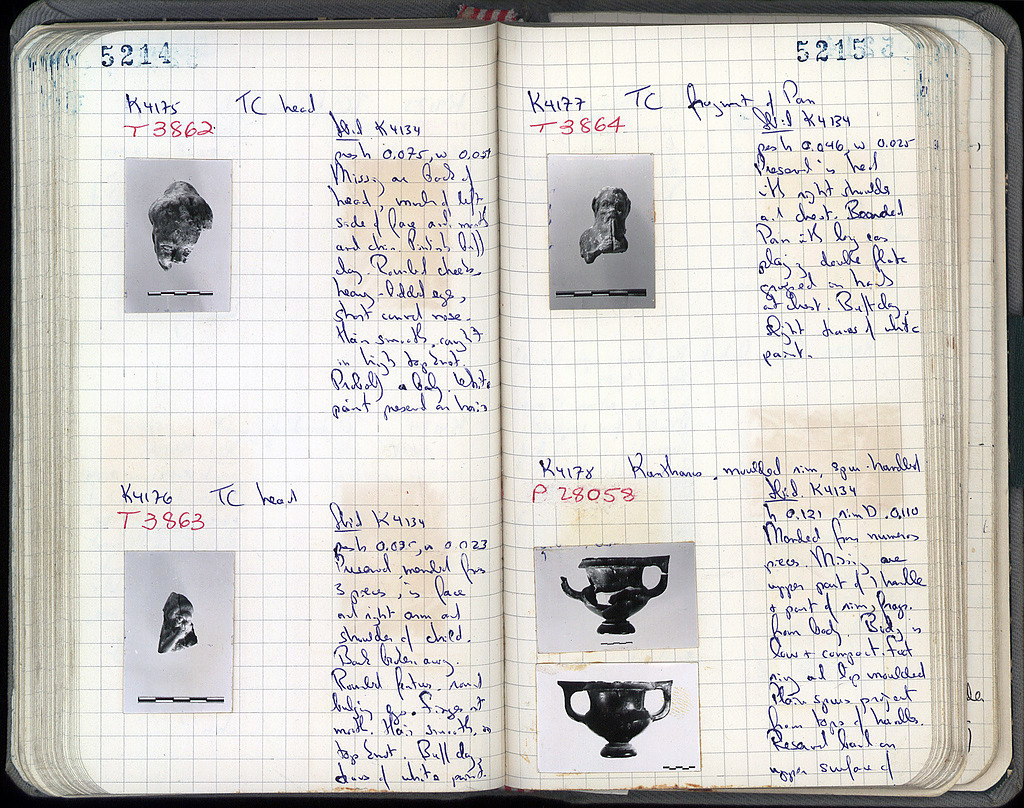 5214
K4175 TC head
T 3862
Ibid K4134
pres h 0.075, w 0.051
Missing are back of
head, much of left
side of face and mouth
and chin. Pinkish buff
clay. Rounded cheeks,
heavy-lidded eyes,
short curved nose.
Hair smooth, caught
in high topknot.
Probably a baby. White
paint preserved on hair.
K4176 TC head
T 3863
Ibid K4134
pres h 0.035, w 0.023
Preserved, mended from
3 pieces, is face
and right arm and
shoulder of child.
Back broken away.
Rounded features, round
bulging eyes. Fingers at
mouth. Hair smooth, in
topknot. Buff clay;
traces of white paint.
5215
K4177 TC fragment of Pan
T 3864
Ibid K4134
pres h 0.046, w 0.025
Preserved is head
with right shoulder
and chest. Bearded
Pan with long ears
playing double flute
grasped in hands
at chest. Buff clay,
slight traces of white
paint.
K4178 Kantharos, moulded rim, spur-handled
P 28058
Ibid. K4134
h 0.121 rim D .0,110
Mended from numerous
pieces. Missing are
upper part of 1 handle
+ part of rim, frags.
from body. Body is
low + compact. Foot
ring and lip moulded
Plain spurs project
from tops of handles.
Reserved band on
upper surface of